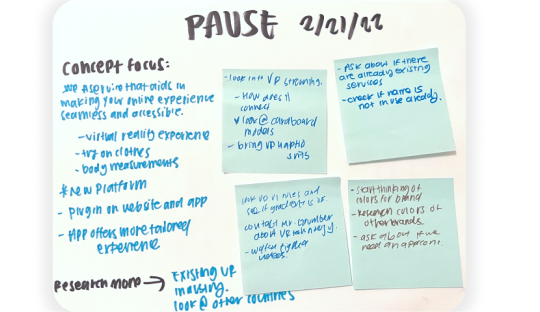 PAUSE 2/21/22
Concept focus:
making your online experience
seamless and accessible.
- virtual reality experience
- try on clothes
- body measurements
* New Platform
- Plugin on website and app
- App offers more tailored
experience
Research more →
Existing VR
look @ other countries
- look into VR streaming.
- How does it
connect
look @ cardboard
models
- bring up haptic
suits
- Ask about if there
are already existing
services
- check if name is
not in use already.
look up
and
see if gradients
contact Mr.
about VR
- start thinking of
colors for brand
- Research colors of
other brands.
- ask about if we
need an